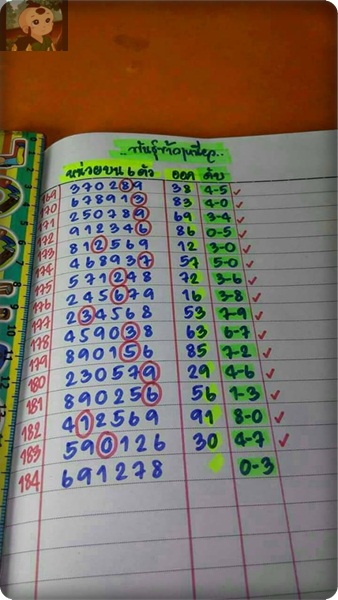 หน่วยบน 6 ตัว ออก ดับ
169 370289 38 4-5 ✓
170 678913 83 4-0 ✓
171 250789 69 3-4 ✓
172 912346 86 0-5 ✓
173 812569 12 3-0 ✓
174 468937 57 5-0 ✓
175 571248 72 3-6 ✓
176 245679 16 3-8 ✓
177 234568 53 7-9 ✓
178 459038 63 6-7 ✓
179 890156 85 7-2 ✓
180 230579 29 4-6 ✓
181 890256 56 1-3 ✓
182 412569 91 8-0 ✓
183 590126 30 4-7 ✓
184 691278 0-3